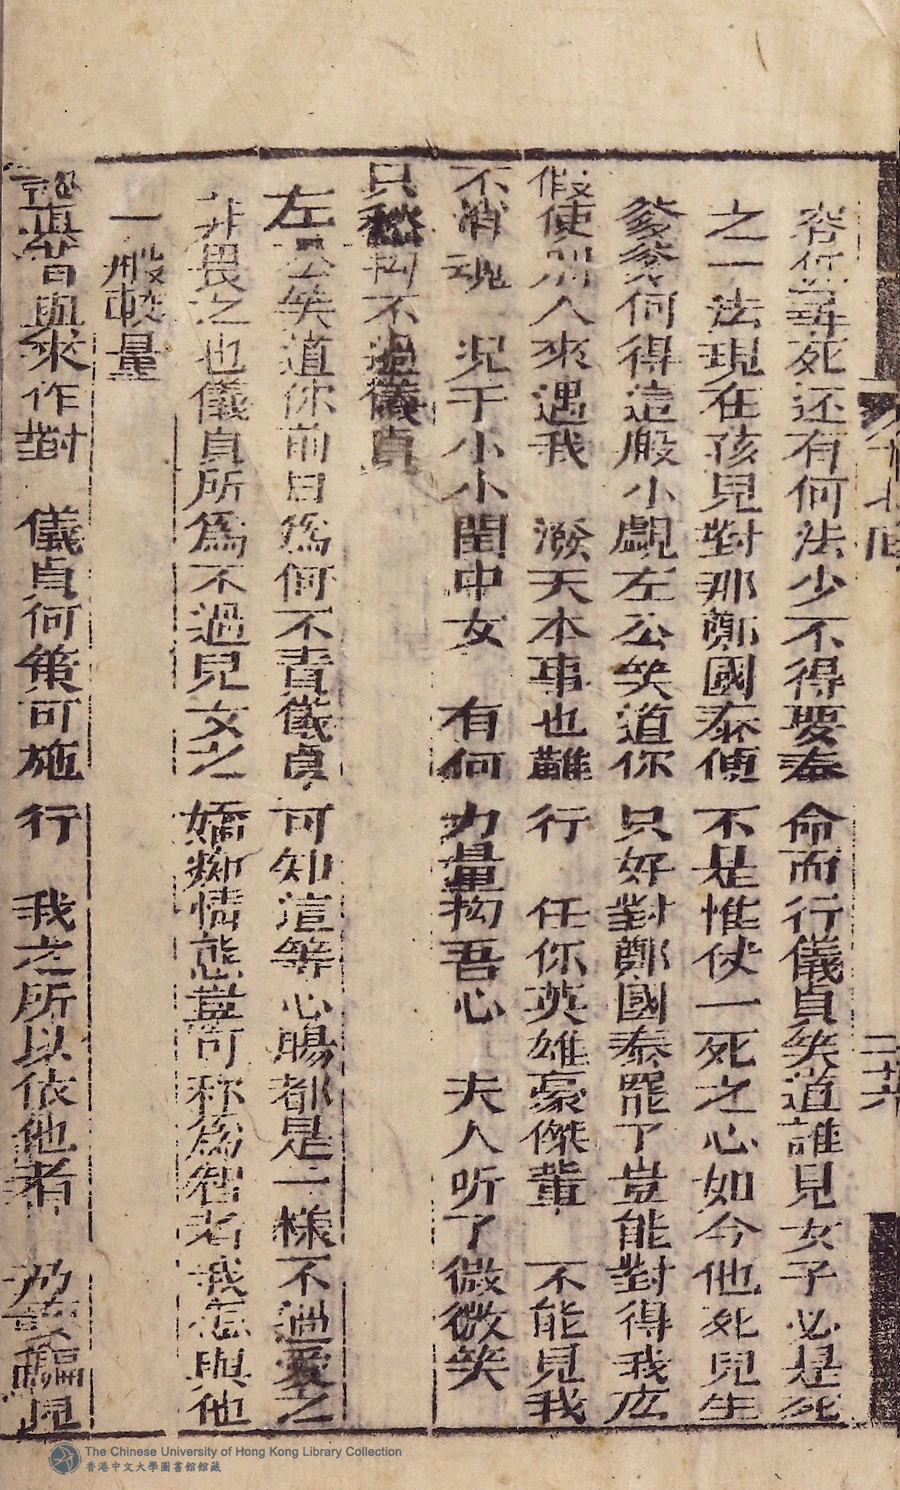 尋死还有何法少不得要奉命而行儀貞笑道誰見女子必是死
之一法現在孩兒對那鄭國泰便不是惟仗一死之心如今他死兒生
爹爹何得這般小覷左公笑道你只好對鄭國泰罷了豈能對得我庅
假使别人來遇我 潑天本事也難行 任你英雄豪傑輩 不能見我
不消魂 况于小小閨中女 有何力量拘吾心 夫人听了微微笑
只愁拘不過儀貞
左公笑道你前日爲何不責儀貞可知這等心腸都是一樣不過愛之
非畏之也儀貞所爲不過兒女之嬌痴情態豈可称爲智者我怎與他
一般較量
與來作對 儀貞何策可施行 我之所以依他者 乃
第十七回
二十六
The Chinese University of Hong Kong Library Collection
香港中文大學圖書館館藏